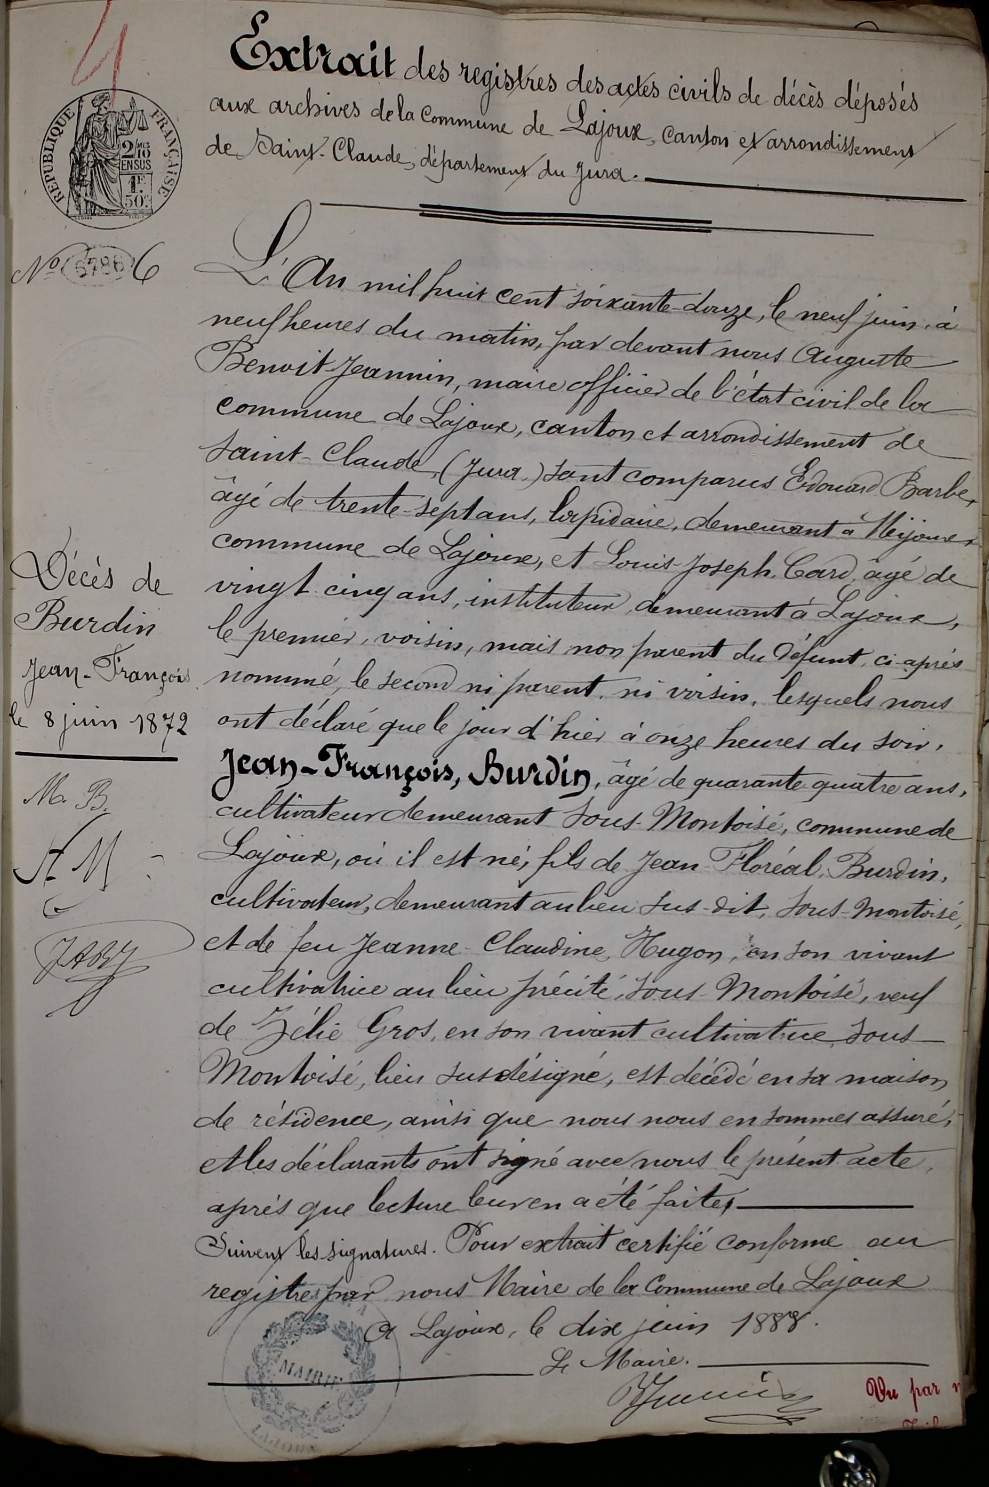 Extrait des registres des actes civils de décès déposés
aux archives de la commune de Lajoux, canton et arrondissement
de Saint-Claude, département du Jura.
RÉPUBLIQUE FRANÇAISE
2/10
EN SUS
1F
50c
No 6786 6
L'An mil huit cent soixante-douze, le neuf juin, à
neuf heures du matin, par devant nous Auguste
Benoit Jeannin, maire officier de l'état civil de la
commune de Lajoux, canton et arrondissement de
Saint-Claude, (Jura) sont comparus Edouard Barbe,
âgé de trente-sept ans, lapidaire, demeurant à Mijoux,
commune de Lajoux, et Louis Joseph Card, âgé de
vingt cinq ans, instituteur, demeurant à Lajoux,
le premier, voisin, mais non parent du défunt, ci-après
nommé, le second ni parent, ni voisin, lesquels nous
ont déclaré que le jour d'hier à onze heures du soir,
Jean-François, Burdin, âgé de quarante quatre ans,
cultivateur demeurant Sous-Montoisé, commune de
Lajoux, où il est né, fils de Jean Floréal Burdin,
cultivateur, demeurant au lieu sus-dit, Sous-Montoisé,
et de feu Jeanne-Claudine Hugon, en son vivant
cultivatrice au lieu précité, Sous-Montoisé, veuf
de Zélie Gros, en son vivant cultivatrice Sous-
Montoisé, lieu susdésigné, est décédé en sa maison
de résidence, ainsi que nous nous en sommes assuré,
et les déclarants ont signé avec nous le présent acte,
après que lecture leur en a été faite,
Suivent les signatures. Pour extrait certifié conforme au
registre par nous Maire de la Commune de Lajoux
A Lajoux, le dix juin 1888.
Le Maire.
MAIRIE
Vu par
Décès de
Burdin
Jean-François
le 8 juin 1872
M. B.